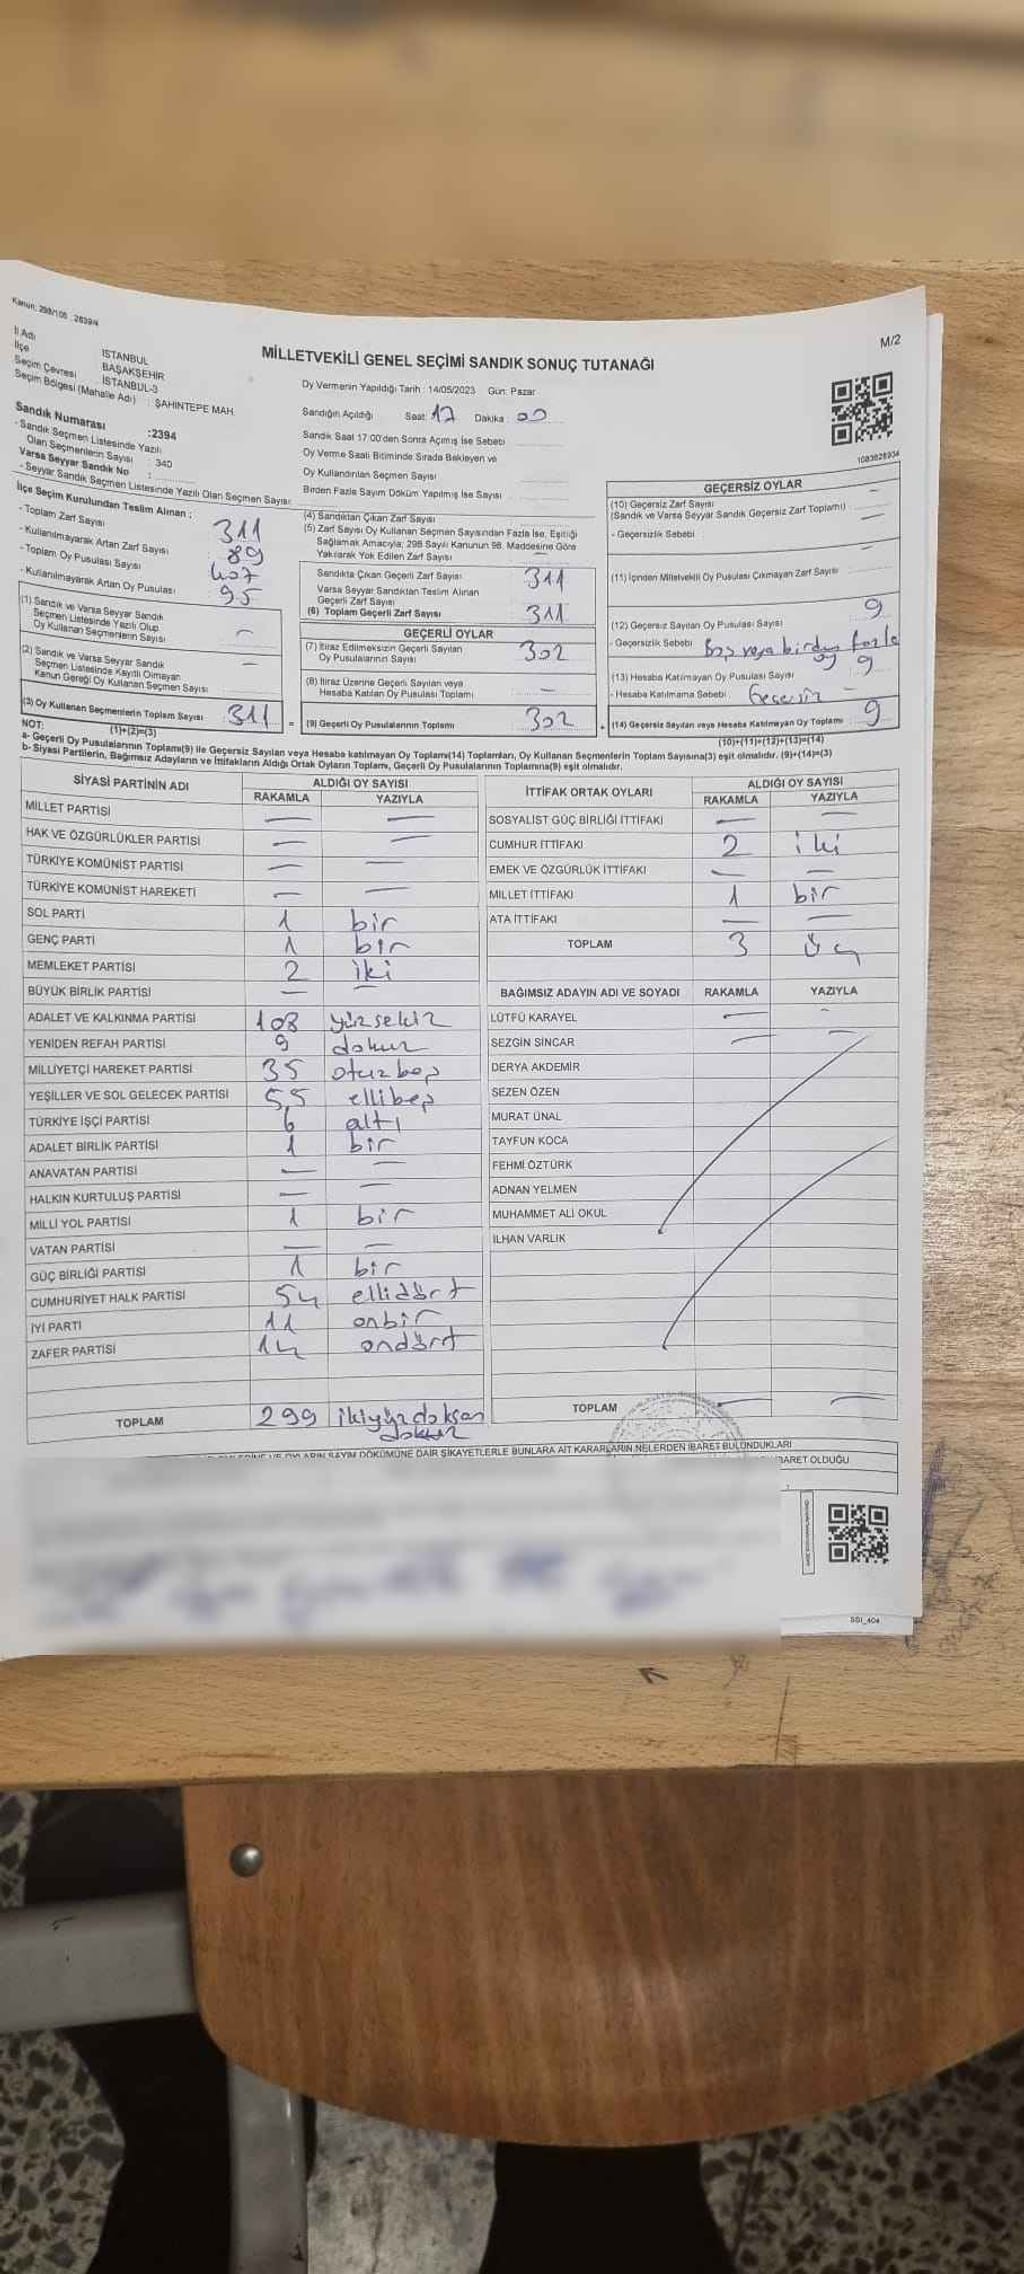 Kanun: 298/105 . 2839/4
M/2
İl Adı : İSTANBUL
İlçe : BAŞAKŞEHİR
Seçim Çevresi : İSTANBUL-3
Seçim Bölgesi (Mahalle Adı) : ŞAHİNTEPE MAH.
MİLLETVEKİLİ GENEL SEÇİMİ SANDIK SONUÇ TUTANAĞI
Oy Vermenin Yapıldığı Tarih : 14/05/2023 Gün: Pazar
Sandığın Açıldığı Saat: 17 Dakika : 00
Sandık Saat 17:00'den Sonra Açılmış İse Sebebi
Oy Verme Saati Bitiminde Sırada Bekleyen ve
Oy Kullandırılan Seçmen Sayısı
Birden Fazla Sayım Döküm Yapılmış İse Sayısı
1083828934
Sandık Numarası :2394
- Sandık Seçmen Listesinde Yazılı
Olan Seçmenlerin Sayısı : 340
Varsa Seyyar Sandık No :
- Seyyar Sandık Seçmen Listesinde Yazılı Olan Seçmen Sayısı:
İlçe Seçim Kurulundan Teslim Alınan ;
- Toplam Zarf Sayısı 311
- Kullanılmayarak Artan Zarf Sayısı 89
- Toplam Oy Pusulası Sayısı 407
- Kullanılmayarak Artan Oy Pusulası 95
(1) Sandık ve Varsa Seyyar Sandık
Seçmen Listesinde Yazılı Olup
Oy Kullanan Seçmenlerin Sayısı —
(2) Sandık ve Varsa Seyyar Sandık
Seçmen Listesinde Kayıtlı Olmayan
Kanun Gereği Oy Kullanan Seçmen Sayısı —
(3) Oy Kullanan Seçmenlerin Toplam Sayısı 311 =
(1)+(2)=(3)
(4) Sandıktan Çıkan Zarf Sayısı
(5) Zarf Sayısı Oy Kullanan Seçmen Sayısından Fazla İse, Eşitliği
Sağlamak Amacıyla, 298 Sayılı Kanunun 98. Maddesine Göre
Yakılarak Yok Edilen Zarf Sayısı —
Sandıkta Çıkan Geçerli Zarf Sayısı 311
Varsa Seyyar Sandıktan Teslim Alınan
Geçerli Zarf Sayısı
(6) Toplam Geçerli Zarf Sayısı 311
GEÇERLİ OYLAR
(7) İtiraz Edilmeksizin Geçerli Sayılan
Oy Pusulalarının Sayısı 302
(8) İtiraz Üzerine Geçerli Sayılan veya
Hesaba Katılan Oy Pusulası Toplamı —
(9) Geçerli Oy Pusulalarının Toplamı 302 +
GEÇERSİZ OYLAR
(10) Geçersiz Zarf Sayısı —
(Sandık ve Varsa Seyyar Sandık Geçersiz Zarf Toplamı) —
- Geçersizlik Sebebi
(11) İçinden Milletvekili Oy Pusulası Çıkmayan Zarf Sayısı —
(12) Geçersiz Sayılan Oy Pusulası Sayısı 9
- Geçersizlik Sebebi Boş veya birden fazla
oy
(13) Hesaba Katılmayan Oy Pusulası Sayısı 9
- Hesaba Katılmama Sebebi : Geçersiz —
(14) Geçersiz Sayılan veya Hesaba Katılmayan Oy Toplamı 9
(10)+(11)+(12)+(13)=(14)
NOT:
a- Geçerli Oy Pusulalarının Toplamı(9) ile Geçersiz Sayılan veya Hesaba katılmayan Oy Toplamı(14) Toplamları, Oy Kullanan Seçmenlerin Toplam Sayısına(3) eşit olmalıdır. (9)+(14)=(3)
b- Siyasi Partilerin, Bağımsız Adayların ve İttifakların Aldığı Ortak Oyların Toplamı, Geçerli Oy Pusulalarının Toplamına(9) eşit olmalıdır.
SİYASİ PARTİNİN ADI ALDIĞI OY SAYISI
RAKAMLA YAZIYLA
MİLLET PARTİSİ — —
HAK VE ÖZGÜRLÜKLER PARTİSİ — —
TÜRKİYE KOMÜNİST PARTİSİ — —
TÜRKİYE KOMÜNİST HAREKETİ — —
SOL PARTİ 1 bir
GENÇ PARTİ 1 bir
MEMLEKET PARTİSİ 2 iki
BÜYÜK BİRLİK PARTİSİ — —
ADALET VE KALKINMA PARTİSİ 108 yüzsekiz
YENİDEN REFAH PARTİSİ 9 dokuz
MİLLİYETÇİ HAREKET PARTİSİ 35 otuzbeş
YEŞİLLER VE SOL GELECEK PARTİSİ 55 ellibeş
TÜRKİYE İŞÇİ PARTİSİ 6 altı
ADALET BİRLİK PARTİSİ 1 bir
ANAVATAN PARTİSİ — —
HALKIN KURTULUŞ PARTİSİ — —
MİLLİ YOL PARTİSİ 1 bir
VATAN PARTİSİ — —
GÜÇ BİRLİĞİ PARTİSİ 1 bir
CUMHURİYET HALK PARTİSİ 54 ellidört
İYİ PARTİ 11 onbir
ZAFER PARTİSİ 14 ondört
TOPLAM 299 ikiyüzdoksan
dokuz
İTTİFAK ORTAK OYLARI ALDIĞI OY SAYISI
RAKAMLA YAZIYLA
SOSYALİST GÜÇ BİRLİĞİ İTTİFAKI — —
CUMHUR İTTİFAKI 2 iki
EMEK VE ÖZGÜRLÜK İTTİFAKI — —
MİLLET İTTİFAKI 1 bir
ATA İTTİFAKI — —
TOPLAM 3 üç
BAĞIMSIZ ADAYIN ADI VE SOYADI RAKAMLA YAZIYLA
LÜTFÜ KARAYEL — -
SEZGİN SİNCAR — —
DERYA AKDEMİR
SEZEN ÖZEN
MURAT ÜNAL
TAYFUN KOCA
FEHMİ ÖZTÜRK
ADNAN YELMEN
MUHAMMET ALİ OKUL
İLHAN VARLIK
TOPLAM — —
OYLARIN SAYIM DÖKÜMÜNE DAİR ŞİKAYETLERLE BUNLARA AİT KARARLARIN NELERDEN İBARET BULUNDUKLARI
İBARET OLDUĞU
SSI_404